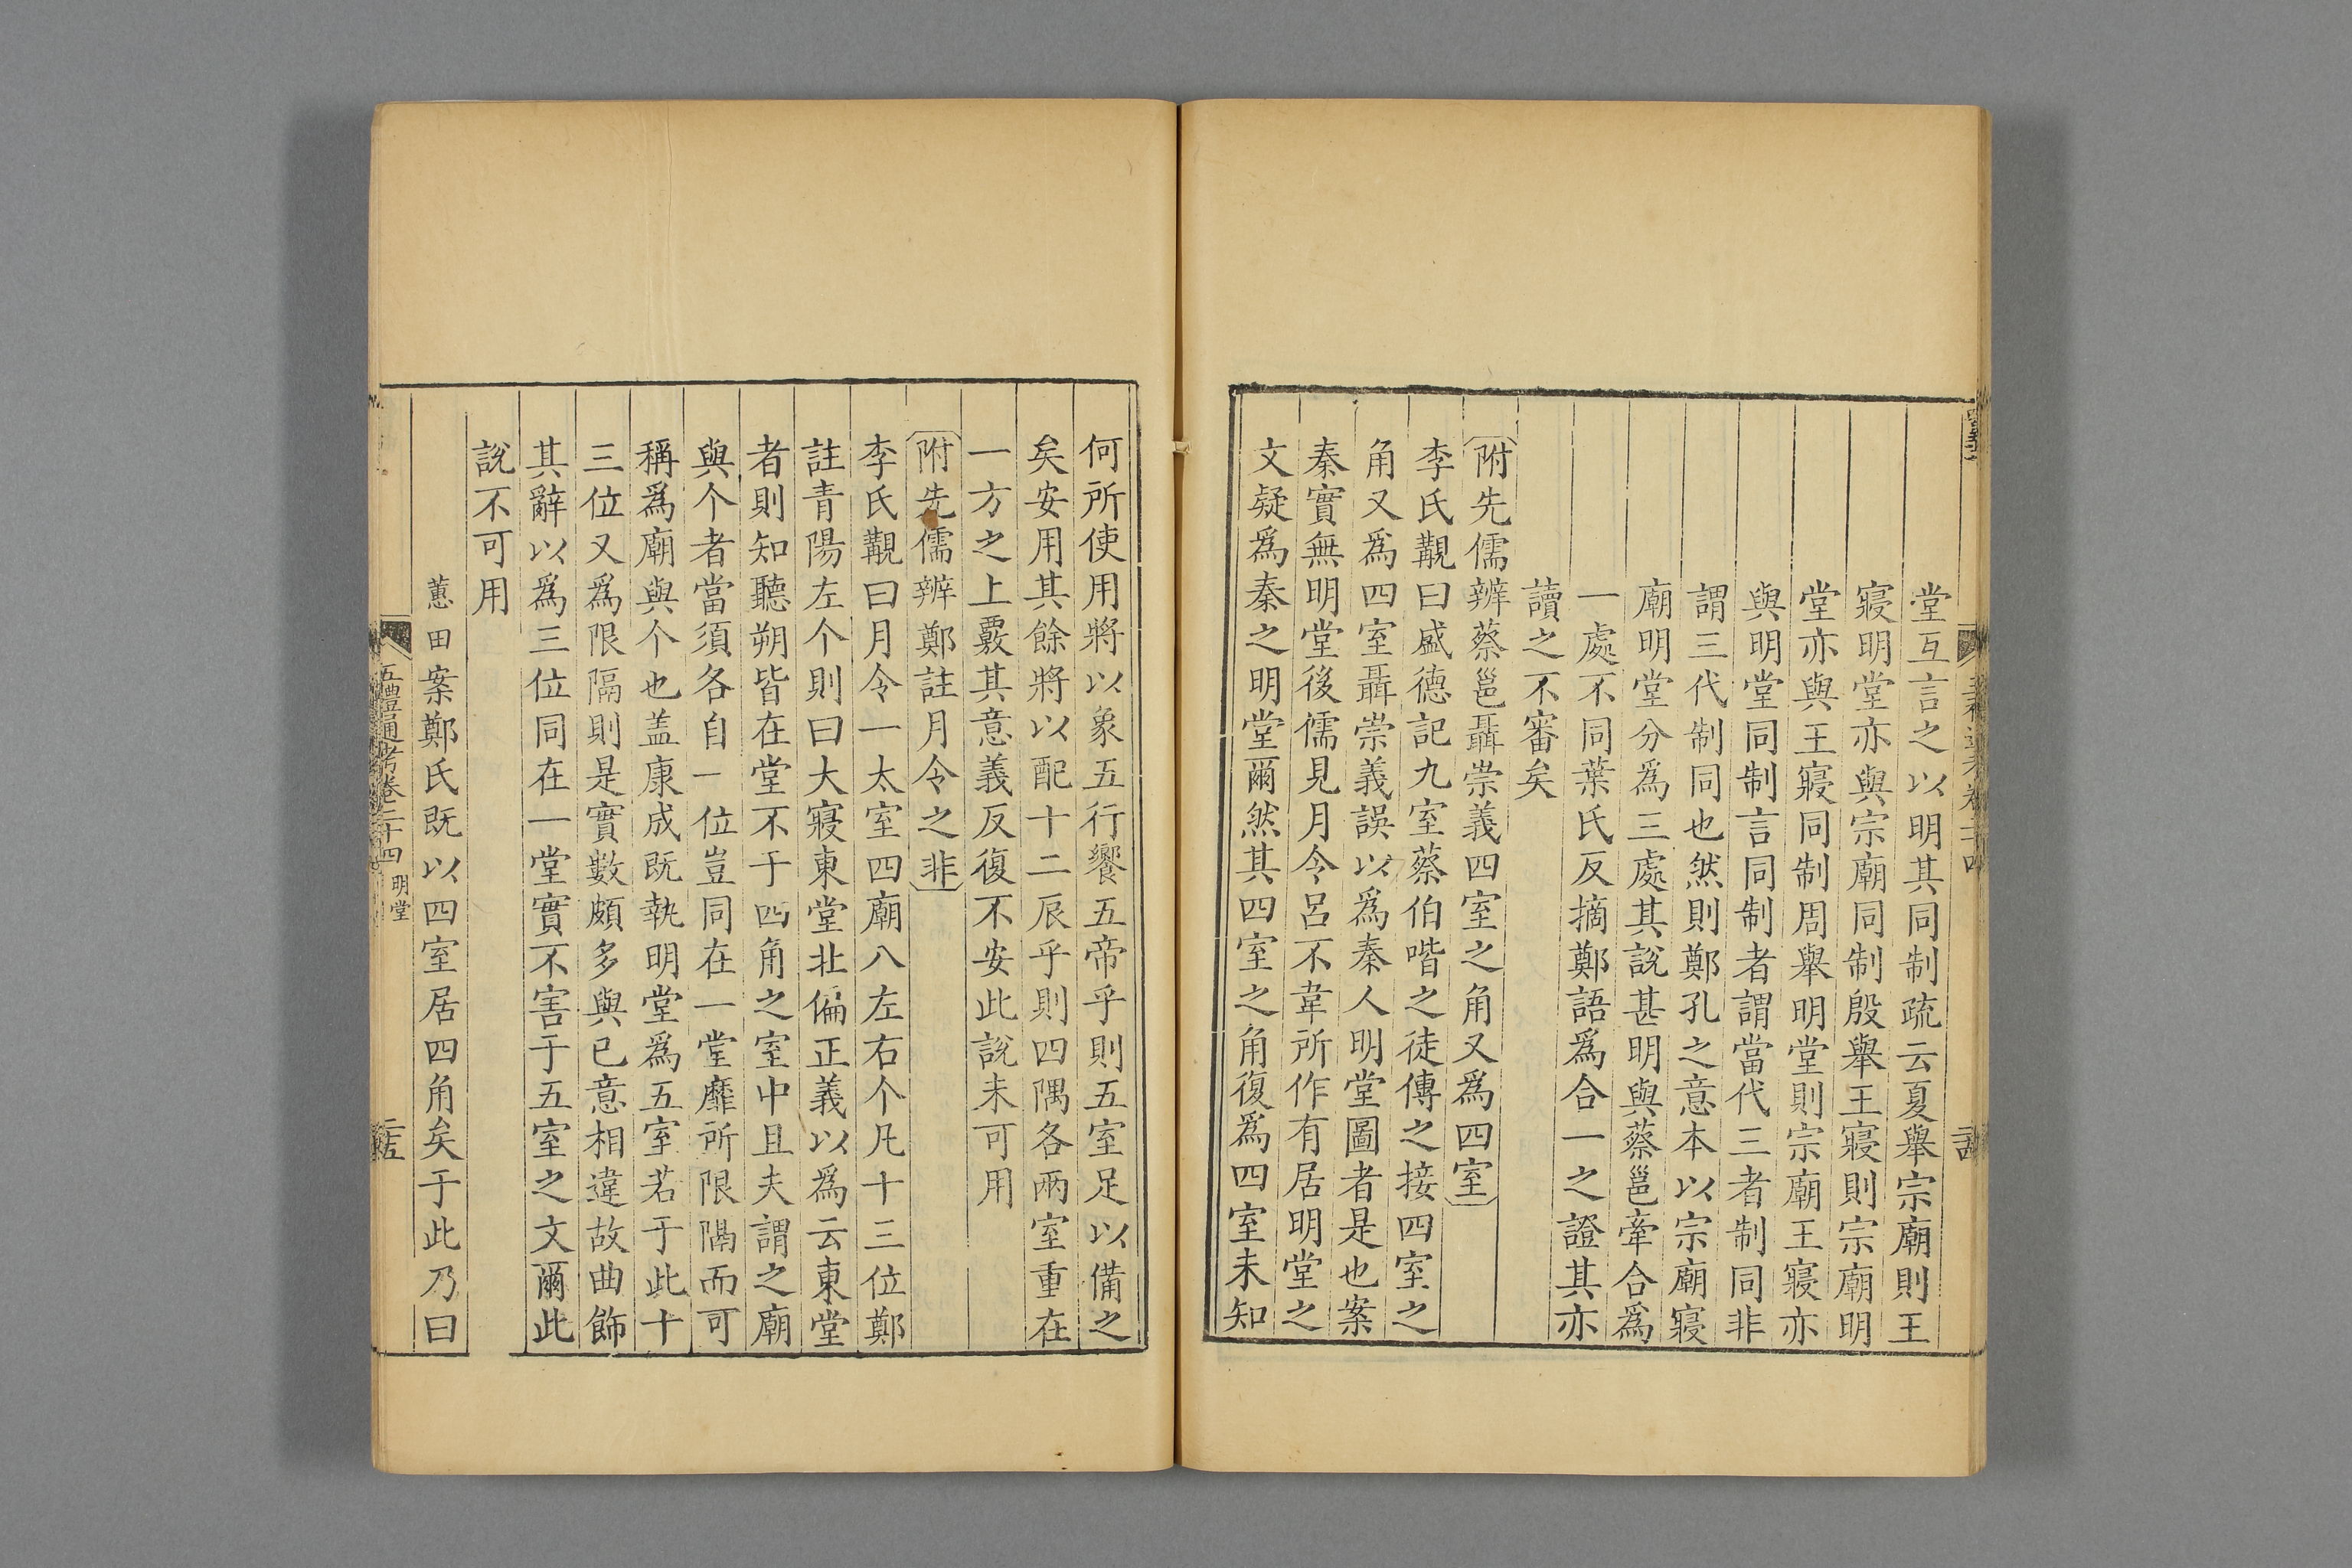 堂互言之以明其同制疏云夏舉宗廟則王
寢明堂亦與宗廟同制殷舉王寢則宗廟明
堂亦與王寢同制周舉明堂則宗廟王寢亦
與明堂同制言同制者謂當代三者制同非
謂三代制同也然則鄭孔之意本以宗廟寢
廟明堂分爲三處其說甚明與蔡邕牽合爲
一處不同葉氏反摘鄭語爲合一之證其亦
讀之不審矣
附先儒辨蔡邕聶崇義四室之角又爲四室
李氏覯曰盛德記九室蔡伯喈之徒傳之接四室之
角又爲四室聶崇義誤以爲秦人明堂圖者是也案
秦實無明堂後儒見月令呂不韋所作有居明堂之
文疑爲秦之明堂爾然其四室之角復爲四室未知
何所使用將以象五行饗五帝乎則五室足以備之
矣安用其餘將以配十二辰乎則四隅各兩室重在
一方之上覈其意義反復不安此說未可用
附先儒辨鄭註月令之非
李氏覯曰月令一太室四廟八左右个凡十三位鄭
註青陽左个則曰大寢東堂北偏正義以爲云東堂
者則知聽朔皆在堂不于四角之室中且夫謂之廟
與个者當須各自一位豈同在一堂靡所限隔而可
稱爲廟與个也盖康成既執明堂爲五室若于此十
三位又爲限隔則是實數頗多與已意相違故曲飾
其辭以爲三位同在一堂實不害于五室之文爾此
說不可用
蕙田案鄭氏既以四室居四角矣于此乃曰
五禮通考卷二十四 明堂